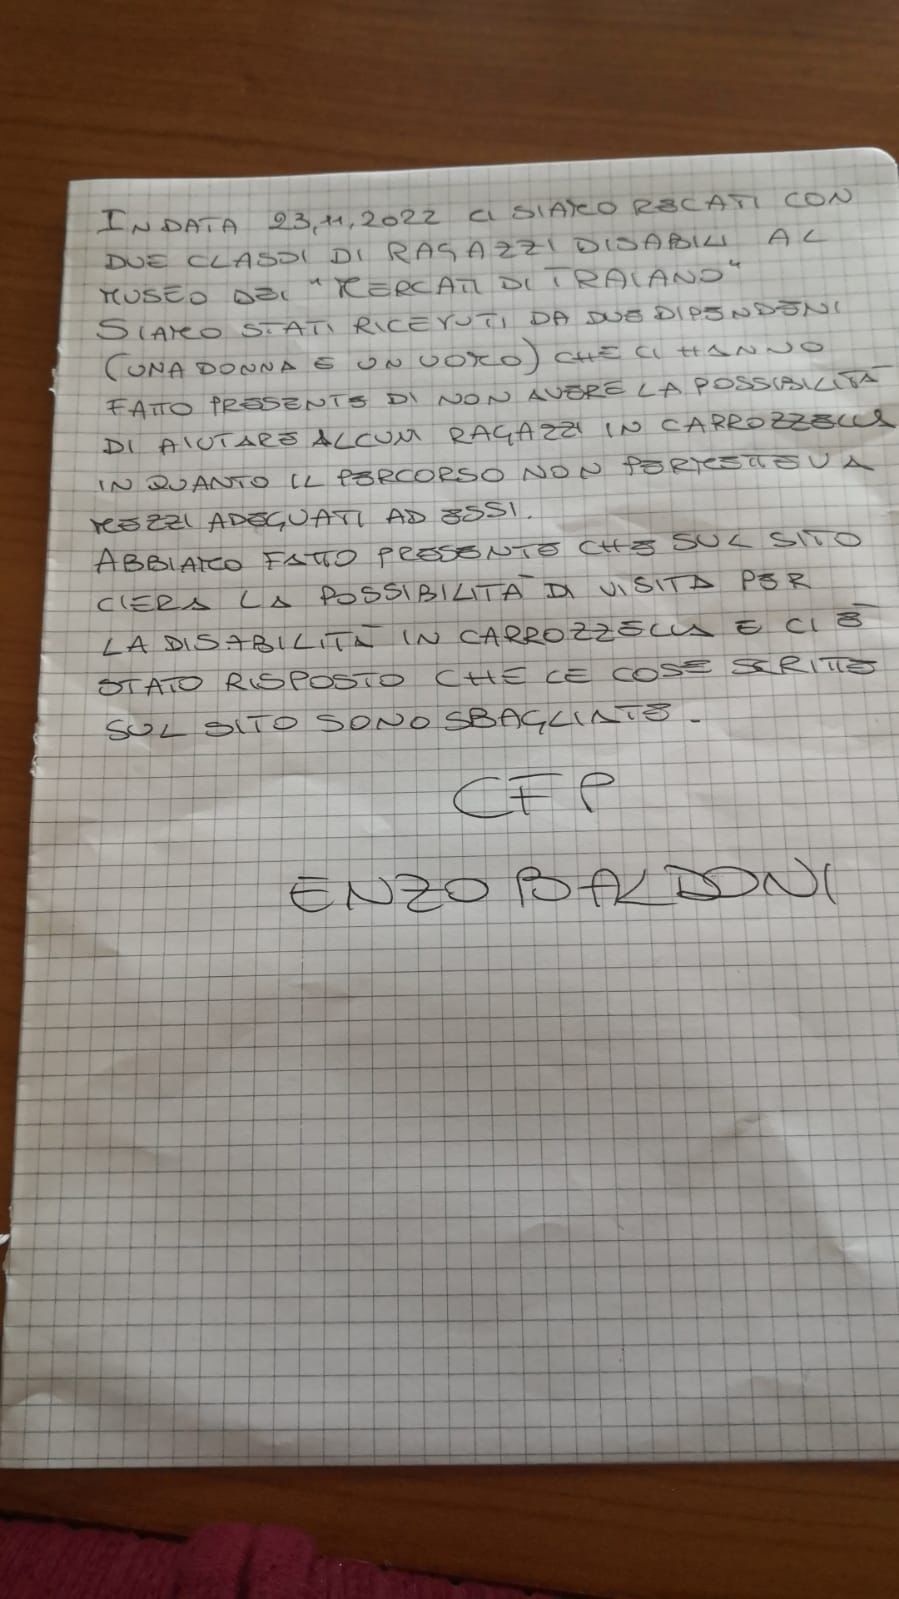 IN DATA 23,11,2022 CI SIAMO RECATI CON
DUE CLASSI DI RAGAZZI DISABILI AL
MUSEO DEI "MERCATI DI TRAIANO"
SIAMO STATI RICEVUTI DA DUE DIPENDENI
(UNA DONNA E UN UOMO) CHE CI HANNO
FATTO PRESENTE DI NON AVERE LA POSSIBILITÀ
DI AIUTARE ALCUNI RAGAZZI IN CARROZZELLA
IN QUANTO IL PERCORSO NON PERMETTEVA
MEZZI ADEGUATI AD ESSI.
ABBIAMO FATTO PRESENTE CHE SUL SITO
CI ERA LA POSSIBILITÀ DI VISITA PER
LA DISABILITÀ IN CARROZZELLA E CI È
STATO RISPOSTO CHE LE COSE SCRITTE
SUL SITO SONO SBAGLIATE.
CFP
ENZO BALDONI